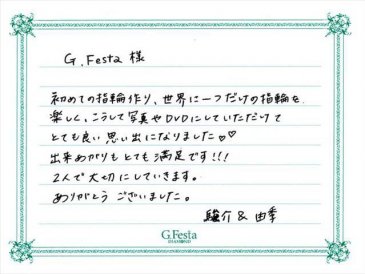 G.Festa 様
初めての指輪作り、世界に一つだけの指輪を
楽しく、こうして写真やDVDにしていただけて
とても良い思い出になりました♡♡
出来あがりもとても満足です!!!
2人で大切にしていきます。
ありがとうございました。
駿介 & 由季
G.Festa
DIAMOND